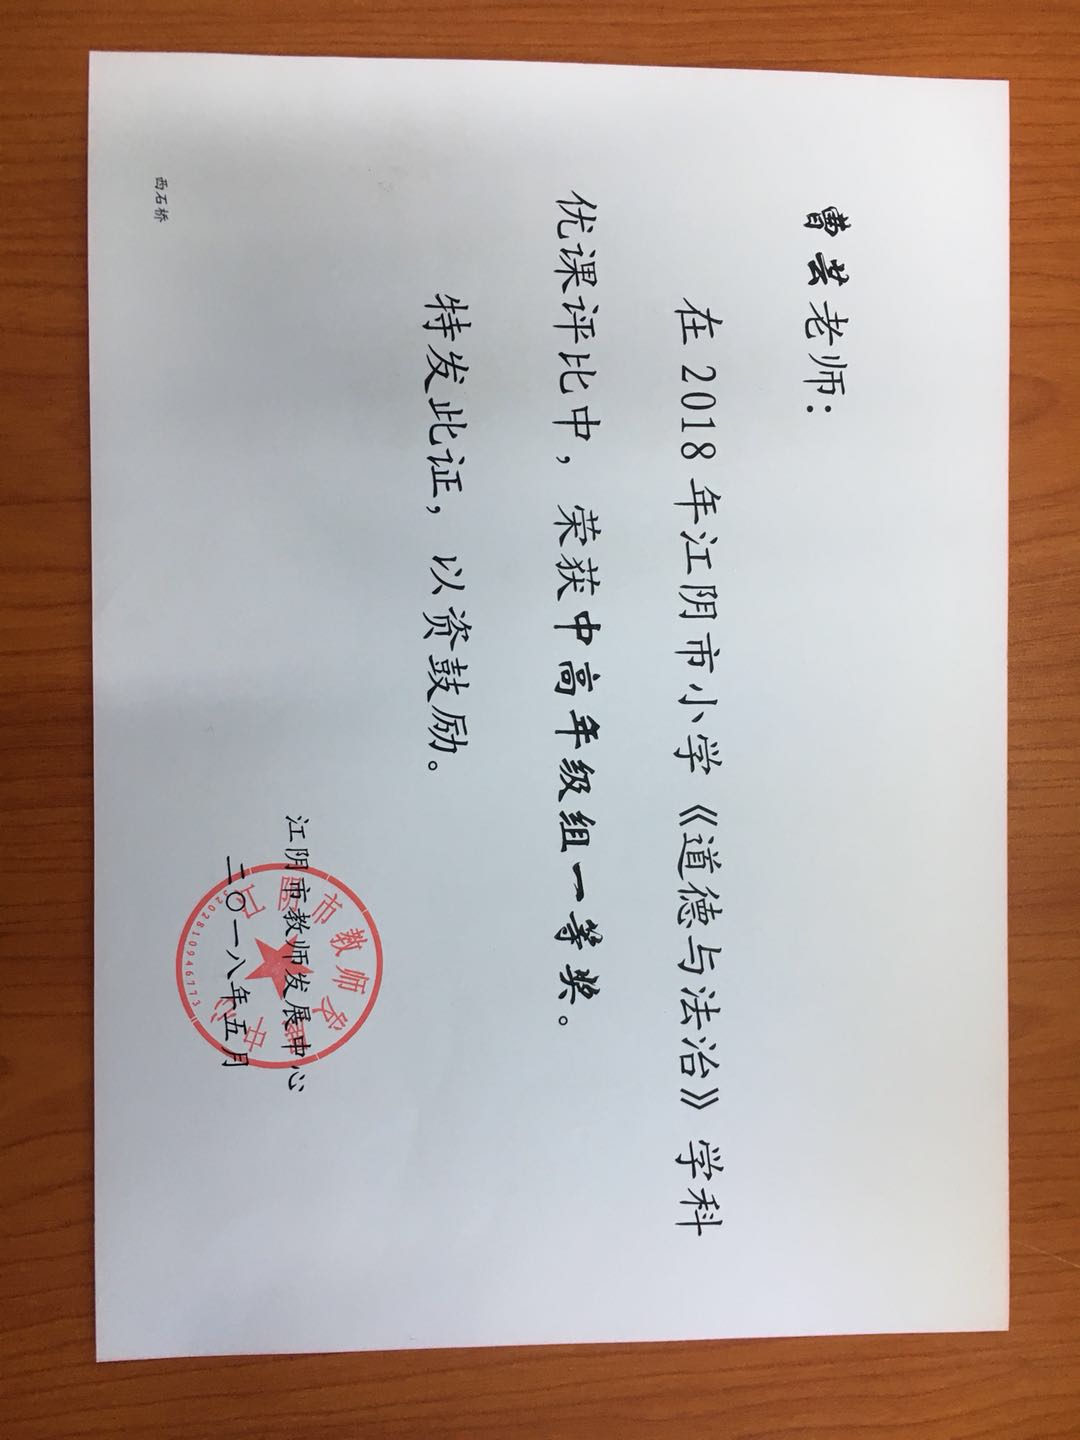 曹芸老师：
在2018年江阴市小学《道德与法治》学科
优课评比中，荣获中高年级组一等奖。
特发此证，以资鼓励。
江阴市教师发展中心
二〇一八年五月
江阴市教师发展中心
3202810946773
西石桥